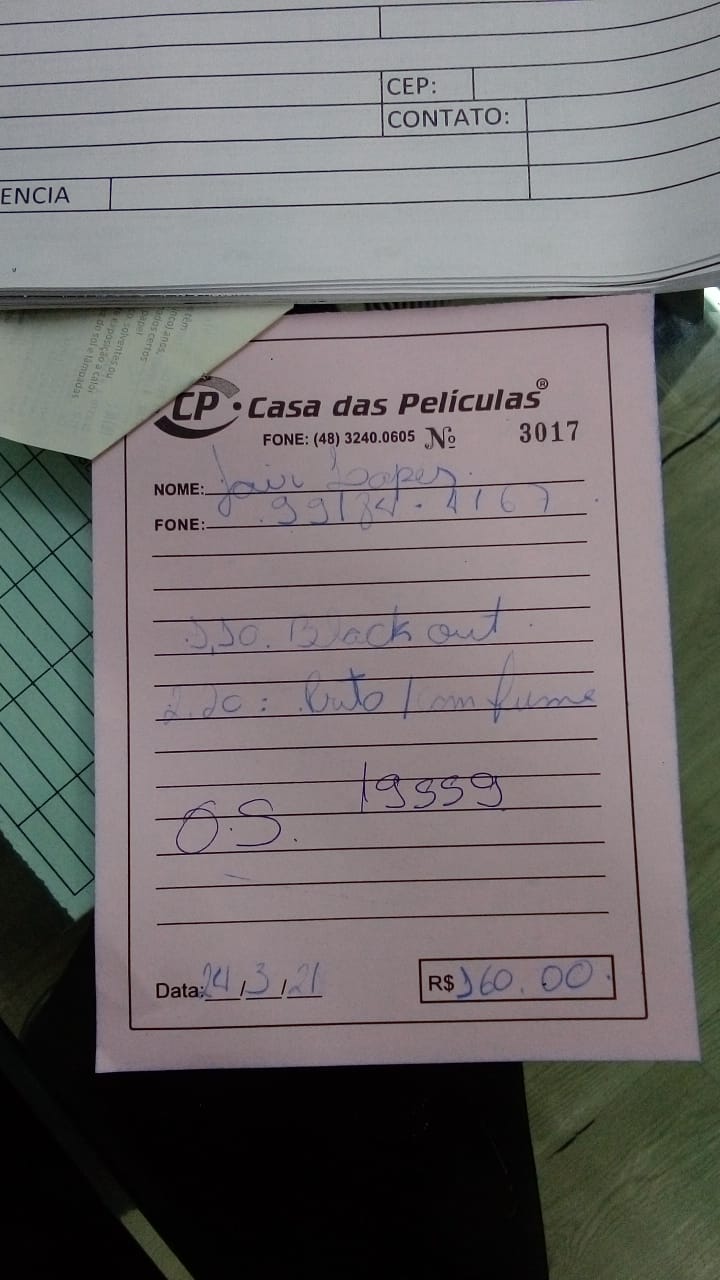 CEP:
CONTATO:
ENCIA
CP • Casa das Películas®
FONE: (48) 3240.0605 Nº 3017
NOME: Jair Lopes
FONE: 99184-4167
Black out
2.20: fume
19559
O.S.
Data: 24/3/21 R$ 160.00